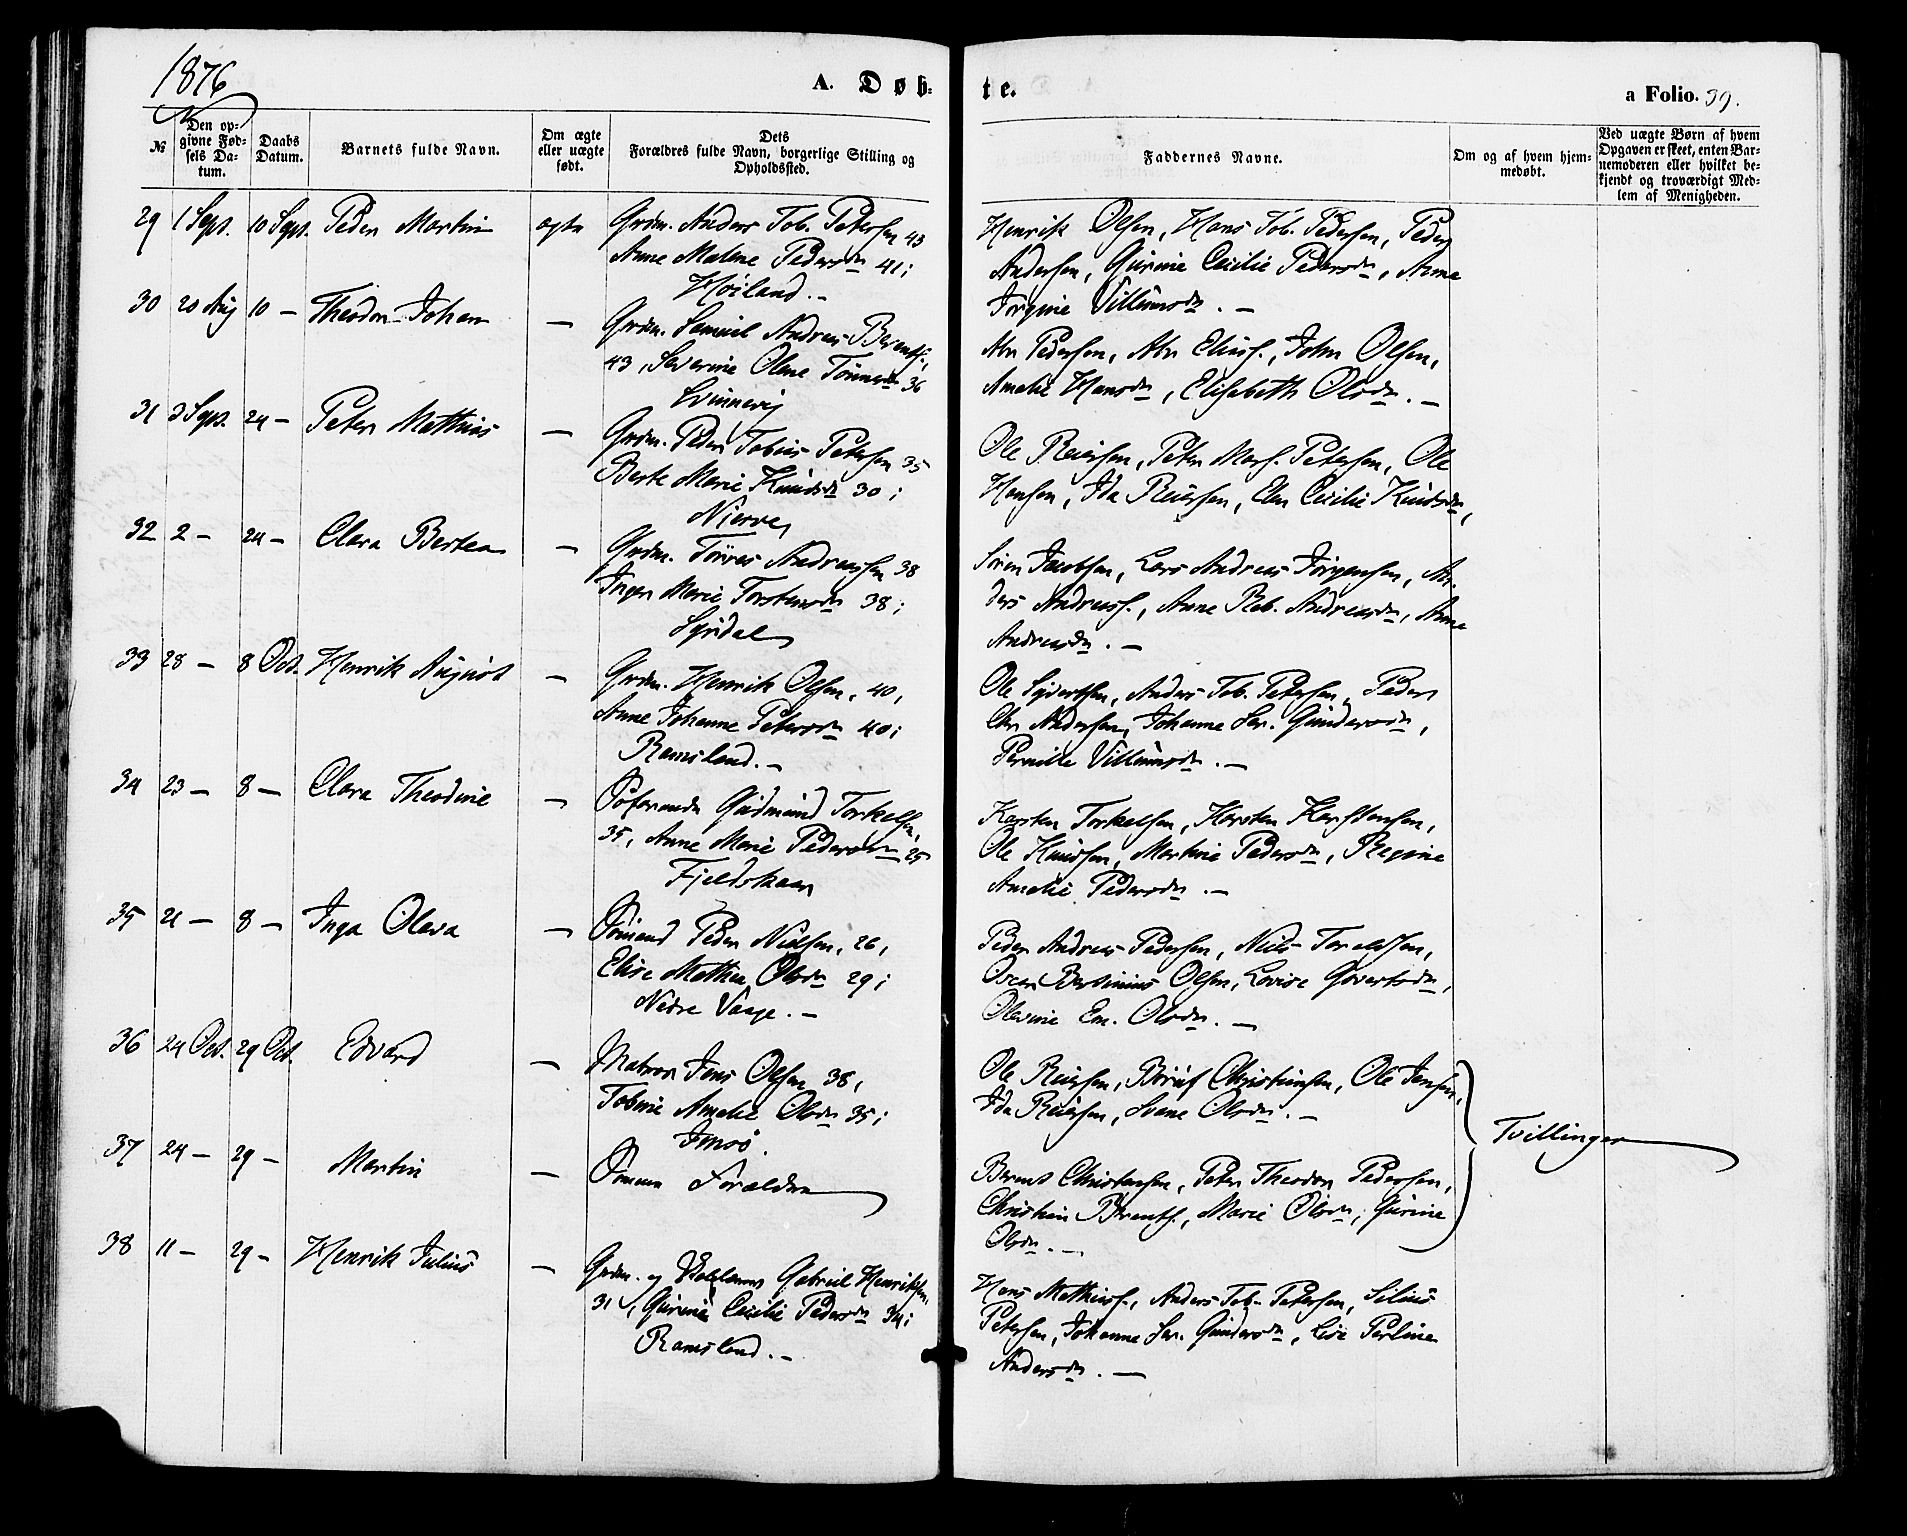 1876
A. Døb-
te.
a Folio. 39.
№
Den op-
givne Fød-
sels Da-
tum.
Daabs
Datum.
Barnets fulde Navn.
Om ægte
eller uægte
født.
Dets
Forældres fulde Navn, borgerlige Stilling og
Opholdssted.
Faddernes Navne.
Om og af hvem hjem-
medøbt.
Ved uægte Børn af hvem
Opgaven er skeet, enten Bar-
nemoderen eller hvilket be-
kjendt og troværdigt Med-
lem af Menigheden.
29 1 Sept. 10 Sept. Peder Martin ægte Grdm. Anders Tob. Petersen 43
Anne Malene Pedersdr 41;
Høiland. -
Henrik Olsen, Hans Tob. Pedersen, Peder
Andersen, Gurine Cecilie Pedersdr, Anne
Jørgine Villumsdr. -
30 20 Aug 10 - Theodor Johan - Grdm. Samuel Andreas Berents.,
43, Severine Oline Tønnesdr 36
Svinnevig
Abr Pedersen, Abr Elias., John Olsen,
Amalie Hansdr, Elisabeth Olsdr. -
31 3 Sept. 24 - Peter Mathias - Grdm. Peder Tobias Petersen 35
Berte Marie Knudsdr 30;
Njerve
Ole Reiersen, Peter Mars. Petersen, Ole
Hansen, Ida Reiersen, Elen Cecilie Knudsdr,
32 2 - 24 - Clara Bertea - Grdm. Tørres Andreassen 38
Inger Marie Torstensdr 38;
Syrdal
Søren Jacobsen, Lars Andreas Jørgensen, An-
ders Andreass., Anne Reb. Andreasdr, Anne
Andreasdr. -
33 28 - 8 Oct. Henrik August - Grdm. Henrik Olsen, 40,
Anne Johanne Petersdr 40;
Ramsland. -
Ole Sivertsen, Anders Tob. Petersen, Peder
Chr Andersen, Johanne Ser. Gundersdr,
Pernille Villumsdr. -
34 23 - 8 - Clara Theodine - Søfarende Gudmund Torkelsen,
35, Anne Marie Pedersdr 25
Fjeldskaar
Karsten Torkelsen, Karsten Karstensen,
Ole Knudsen, Martine Pedersdr, Regine
Amalie Pedersdr. -
35 21 - 8 - Inga Olava - Sømand Peder Nielsen, 26,
Elise Mathea Olsdr 29;
Nedre Vaage. -
Peder Andreas Pedersen, Niels Toraldsen,
Oscar Bertinius Olsen, Lovise Govertsdr,
Olevine Em. Olsdr. -
36 24 Oct. 29 Oct. Edvard - Matros Jens Olsen 38,
Tobine Amalie Olsdr 35;
Imsø.
Ole Reiersen, Børuf Christensen, Ole Jensen,
Ida Reiersen, Svane Olsdr. -
Tvillinger
37 24 - 29 - Martin - Samme Forældre
Berent Christensen, Peter Theodor Pedersen,
Christian Berents., Marie Olsdr, Gurine
Olsdr. -
38 11 - 29 - Henrik Julius - Grdm. og Gabriel Henriksen,
31, Gurine Cecilie Pedersdr 34;
Ramsland. -
Hans Mathias., Anders Tob. Petersen, Silius
Petersen, Johanne Ser. Gundersdr, Lise Perline
Andersdr. -